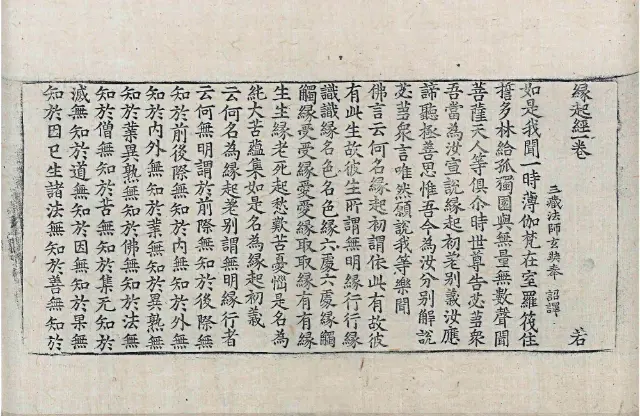 縁起經一卷
三藏法師玄奘奉 詔譯 若
如是我聞一時薄伽梵在室羅筏住
誓多林給孤獨園與無量無數聲聞
菩薩天人等俱尒時世尊告苾芻衆
吾當為汝宣說縁起初差別義汝應
諦聽極善思惟吾今為汝分別解說
苾芻衆言唯然願說我等樂聞
佛言云何名縁起初謂依此有故彼
有此生故彼生所謂無明縁行行縁
識識縁名色名色縁六處六處縁觸
觸縁受受縁愛愛縁取取縁有有縁
生生縁老死起愁歎苦憂惱是名為
純大苦蘊集如是名為縁起初義
云何名為縁起差別謂無明縁行者
云何無明謂於前際無知於後際無
知於前後際無知於內無知於外無
知於內外無知於業無知於異熟無
知於業異熟無知於佛無知於法無
知於僧無知於苦無知於集无知於
滅無知於道無知於因無知於果無
知於因已生諸法無知於善無知於